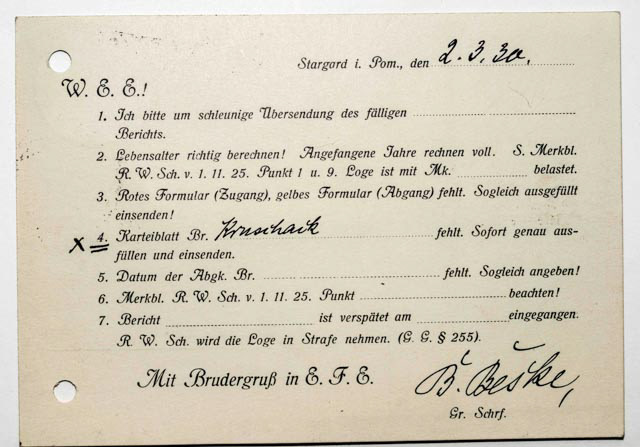 Stargard i. Pom., den 2. 3. 30.
W. E. E.!
1. Ich bitte um schleunige Übersendung des fälligen
Berichts.
2. Lebensalter richtig berechnen! Angefangene Jahre rechnen voll. S. Merkbl.
R. W. Sch. v. 1. 11. 25. Punkt 1 u. 9. Loge ist mit Mk. belastet.
3. Rotes Formular (Zugang), gelbes Formular (Abgang) fehlt. Sogleich ausgefüllt
einsenden!
x 4. Karteiblatt Br. fehlt. Sofort genau aus-
füllen und einsenden.
5. Datum der Abgk. Br. fehlt. Sogleich angeben!
6. Merkbl. R. W. Sch. v. 1. 11. 25. Punkt beachten!
7. Bericht ist verspätet am eingegangen.
R. W. Sch. wird die Loge in Strafe nehmen. (G. G. § 255).
Mit Brudergruß in E. F. E.
Gr. Schrf.